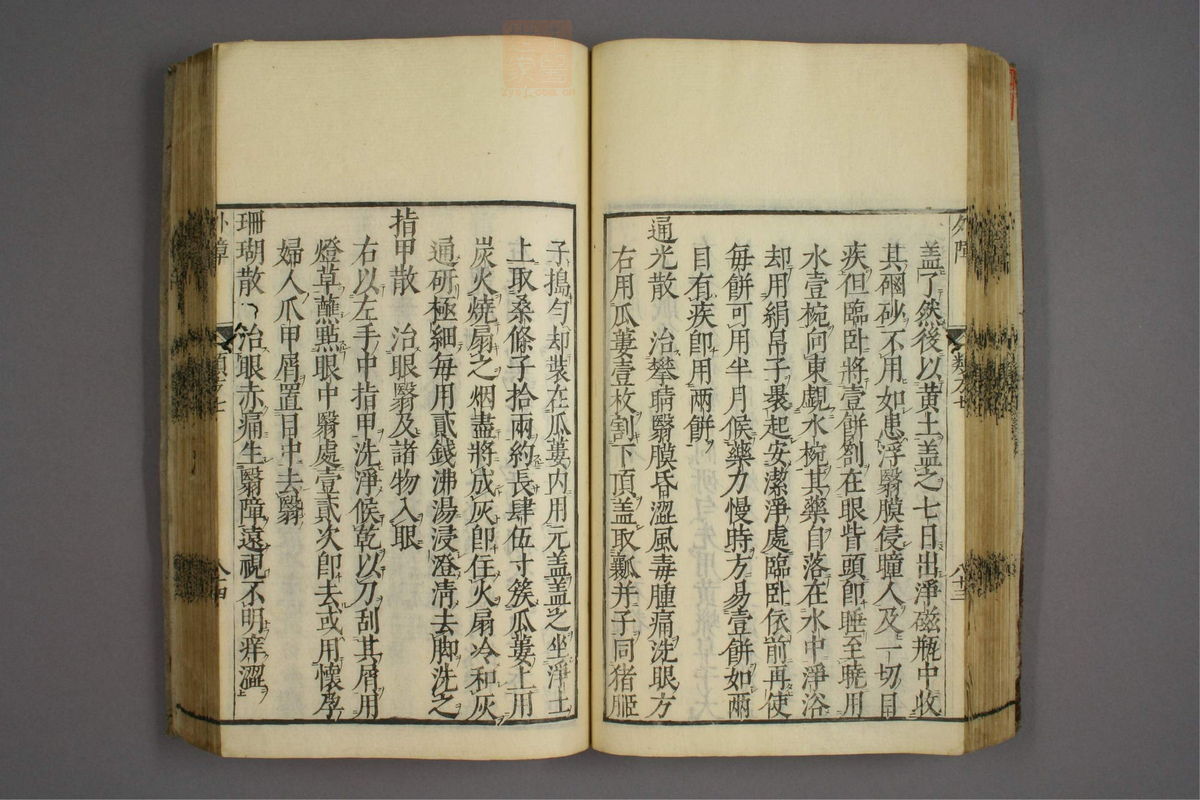 盖了然後以黃土盖之七日出淨磁瓶中收
其硇砂不用如患浮翳膜侵瞳人及一切目
疾但臨臥將壹餅劄在眼眥頭卽睡至曉用
水壹椀向東覷水椀其藥自落在水中淨浴
却用絹帛子褁起安潔淨處臨臥依前再使
每餅可用半月候藥力慢時方易壹餅如兩
目有疾卽用兩餅
通光散 治攀睛翳膜昏澀風毒腫痛洗眼方
右用瓜蔞壹枚割下頂盖取瓤并子同猪胵
外障
類卷七
八十三
子搗勻却裝在瓜蔞内用元盖盖之坐淨土
上取桑條子拾兩約長肆伍寸簇瓜蔞上用
炭火燒扇之烟盡將成灰卽住火扇冷和灰
通研極細每用貳錢沸湯浸澄淸去脚洗之
指甲散 治眼翳及諸物入眼
右以左手中指甲洗淨候乾以刀刮其屑用
燈草蘸㸃眼中翳處壹貳次卽去或用懷孕
婦人爪甲屑置目中去翳
珊瑚散 治眼赤痛生翳障遠視不明痒澀
外障
八十四